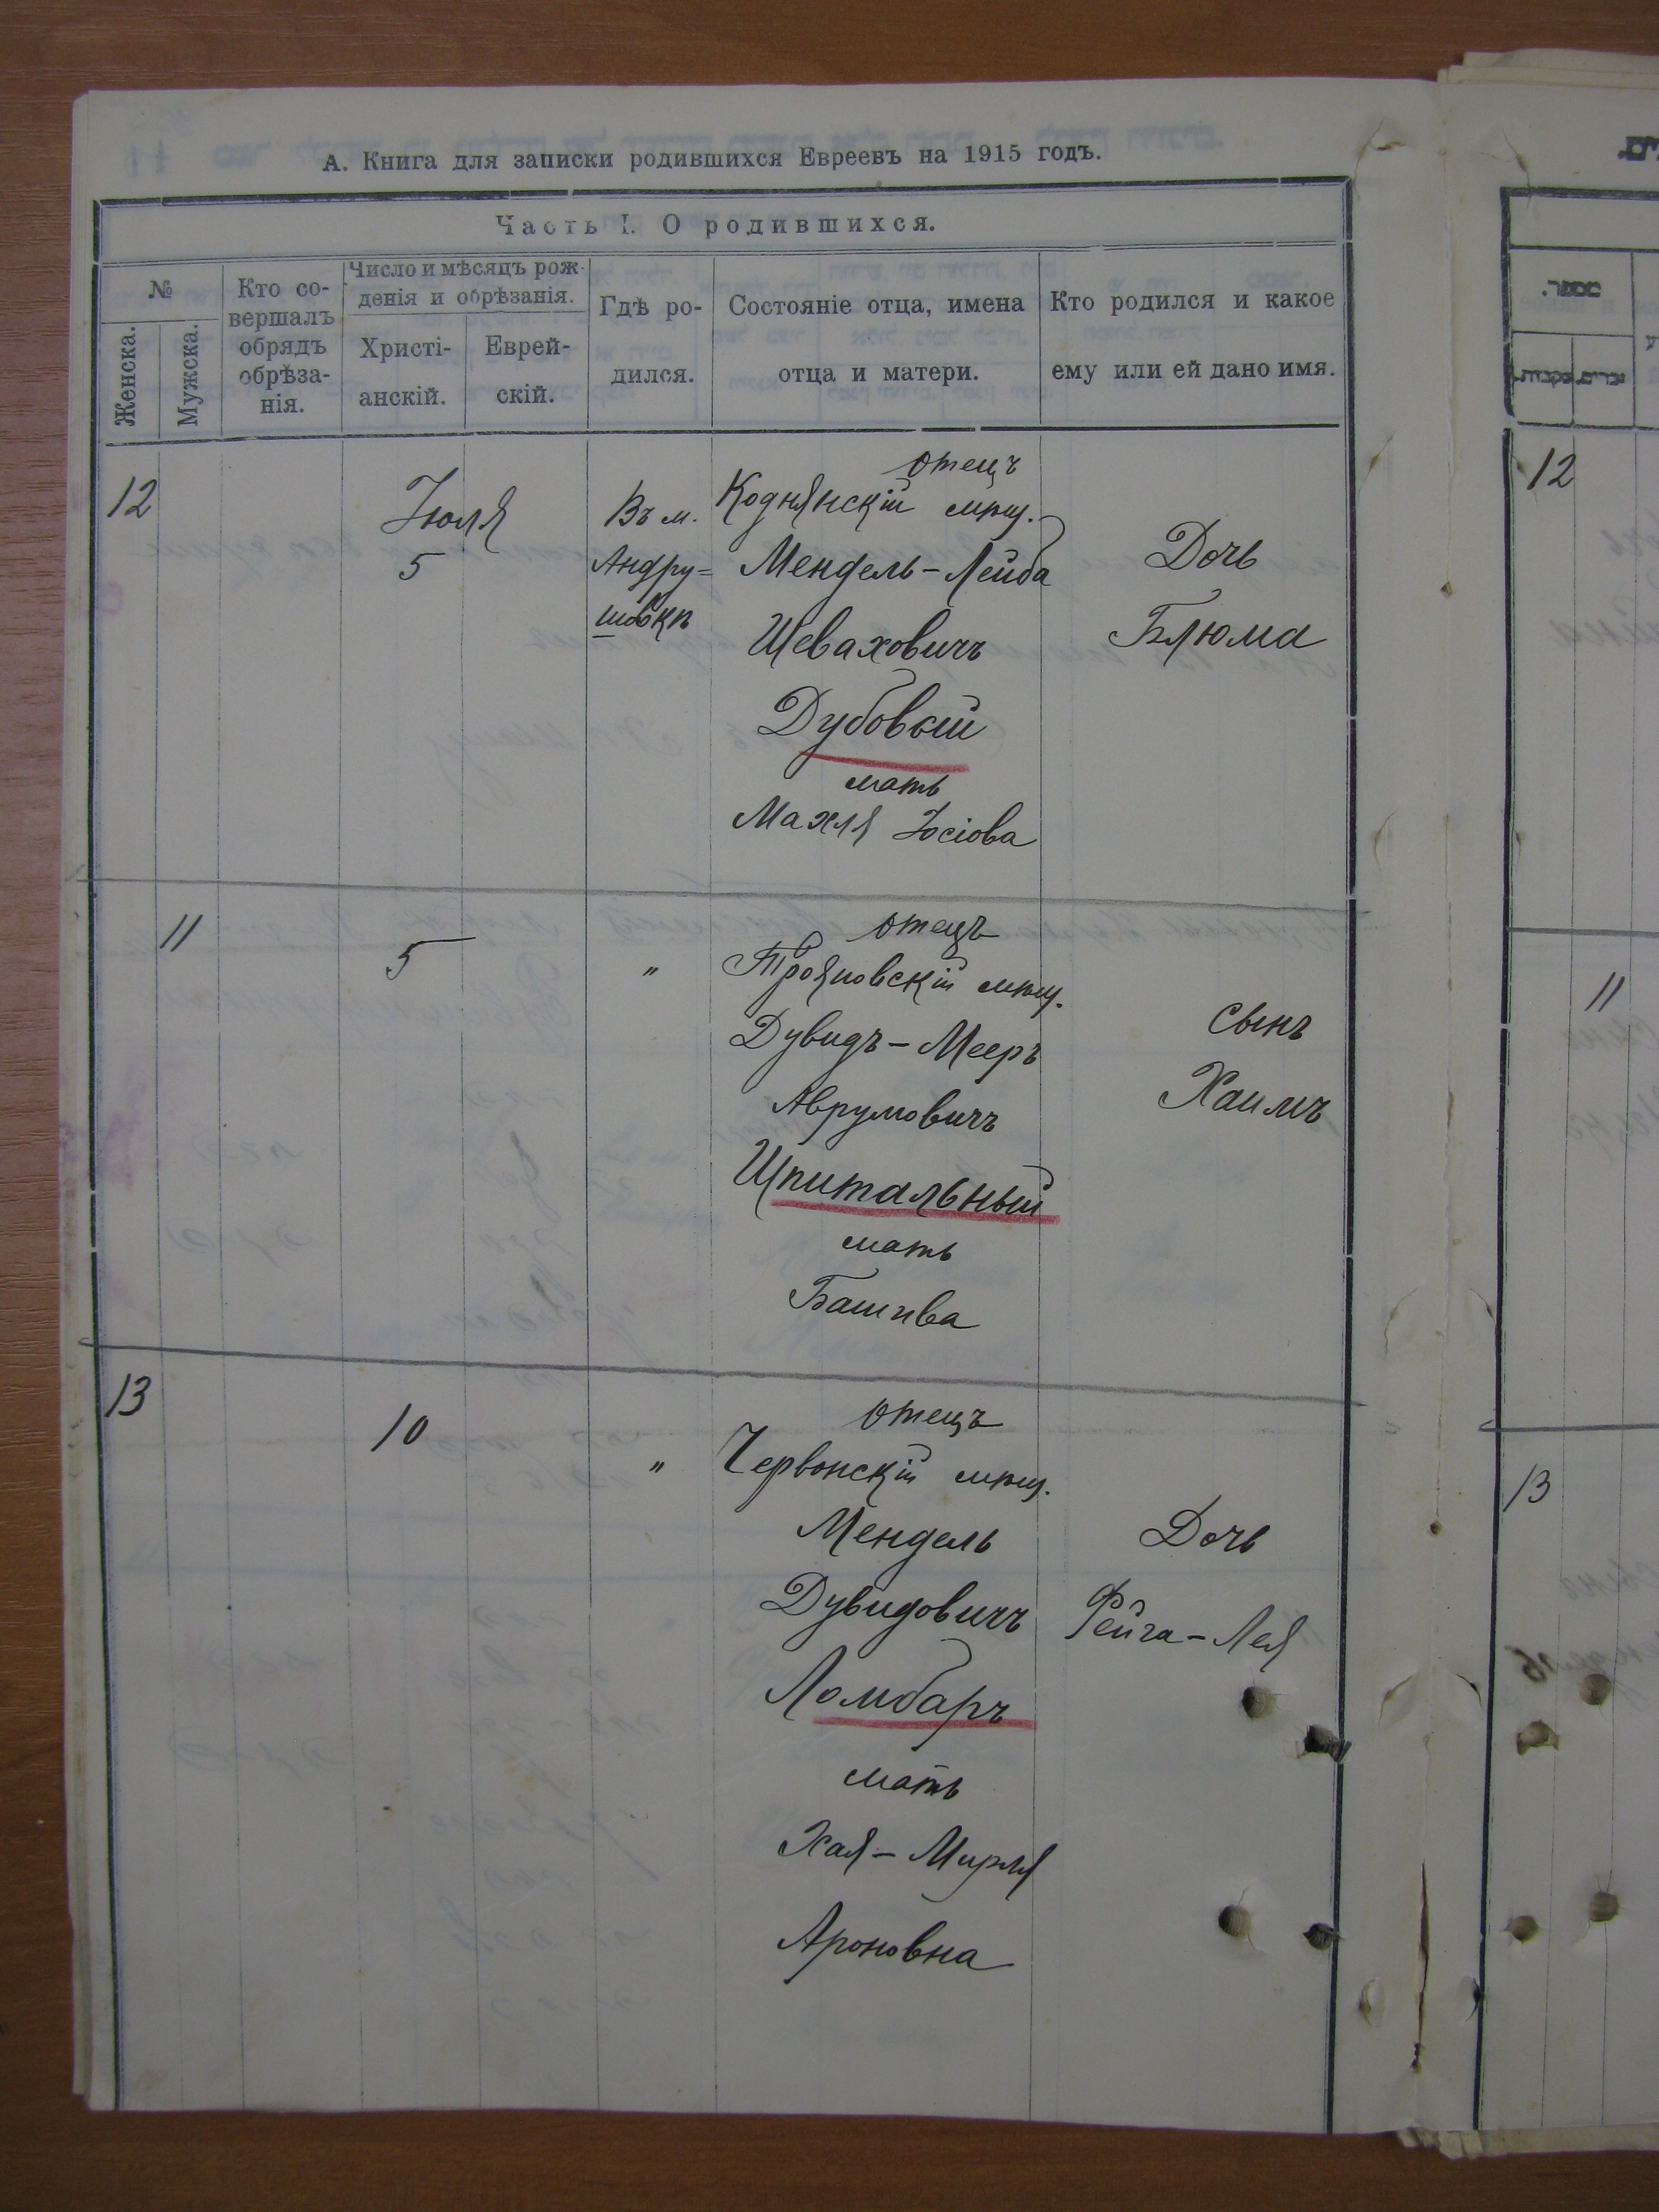 А. Книга для записки родившихся Евреевъ на 1915 годъ.
Часть I. О родившихся.
№
Женска.
Мужска.
Кто со-
вершалъ
обрядъ
обрѣза-
нія.
Число и мѣсяцъ рож-
денія и обрѣзанія.
Христі-
анскій.
Еврей-
скій.
Гдѣ ро-
дился.
Состояніе отца, имена
отца и матери.
Кто родился и какое
ему или ей дано имя.
12
Іюля
5
Въ м.
Андру=
шовкѣ
отецъ
Коднянскій мѣщ.
Мендель-Лейба
Шеваховичъ
Дубовый
мать
Махля Іосіова
Дочь
Блюма
11
5
"
отецъ
Трояновскій мѣщ.
Дувидъ-Мееръ
Аврумовичъ
Шпитальный
мать
Башива
Сынъ
Хаимъ
13
10
"
отецъ
Червонскій мѣщ.
Мендель
Дувидовичъ
Ломбаръ
мать
Хая-Мирля
Ароновна
Дочь
Фейга-Лея
12
11
13